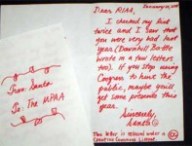 From: Santa
To: The MPAA
Dear RIAA,
I checked my list
twice and I saw that
you were very bad last
year (Downhill Battle
wrote in a few letters
too). If you stop using
Congress to hurt the
public, maybe you'll
get some presents this
year.
Sincerely,
Santa
This letter is released under a
Creative Commons License.